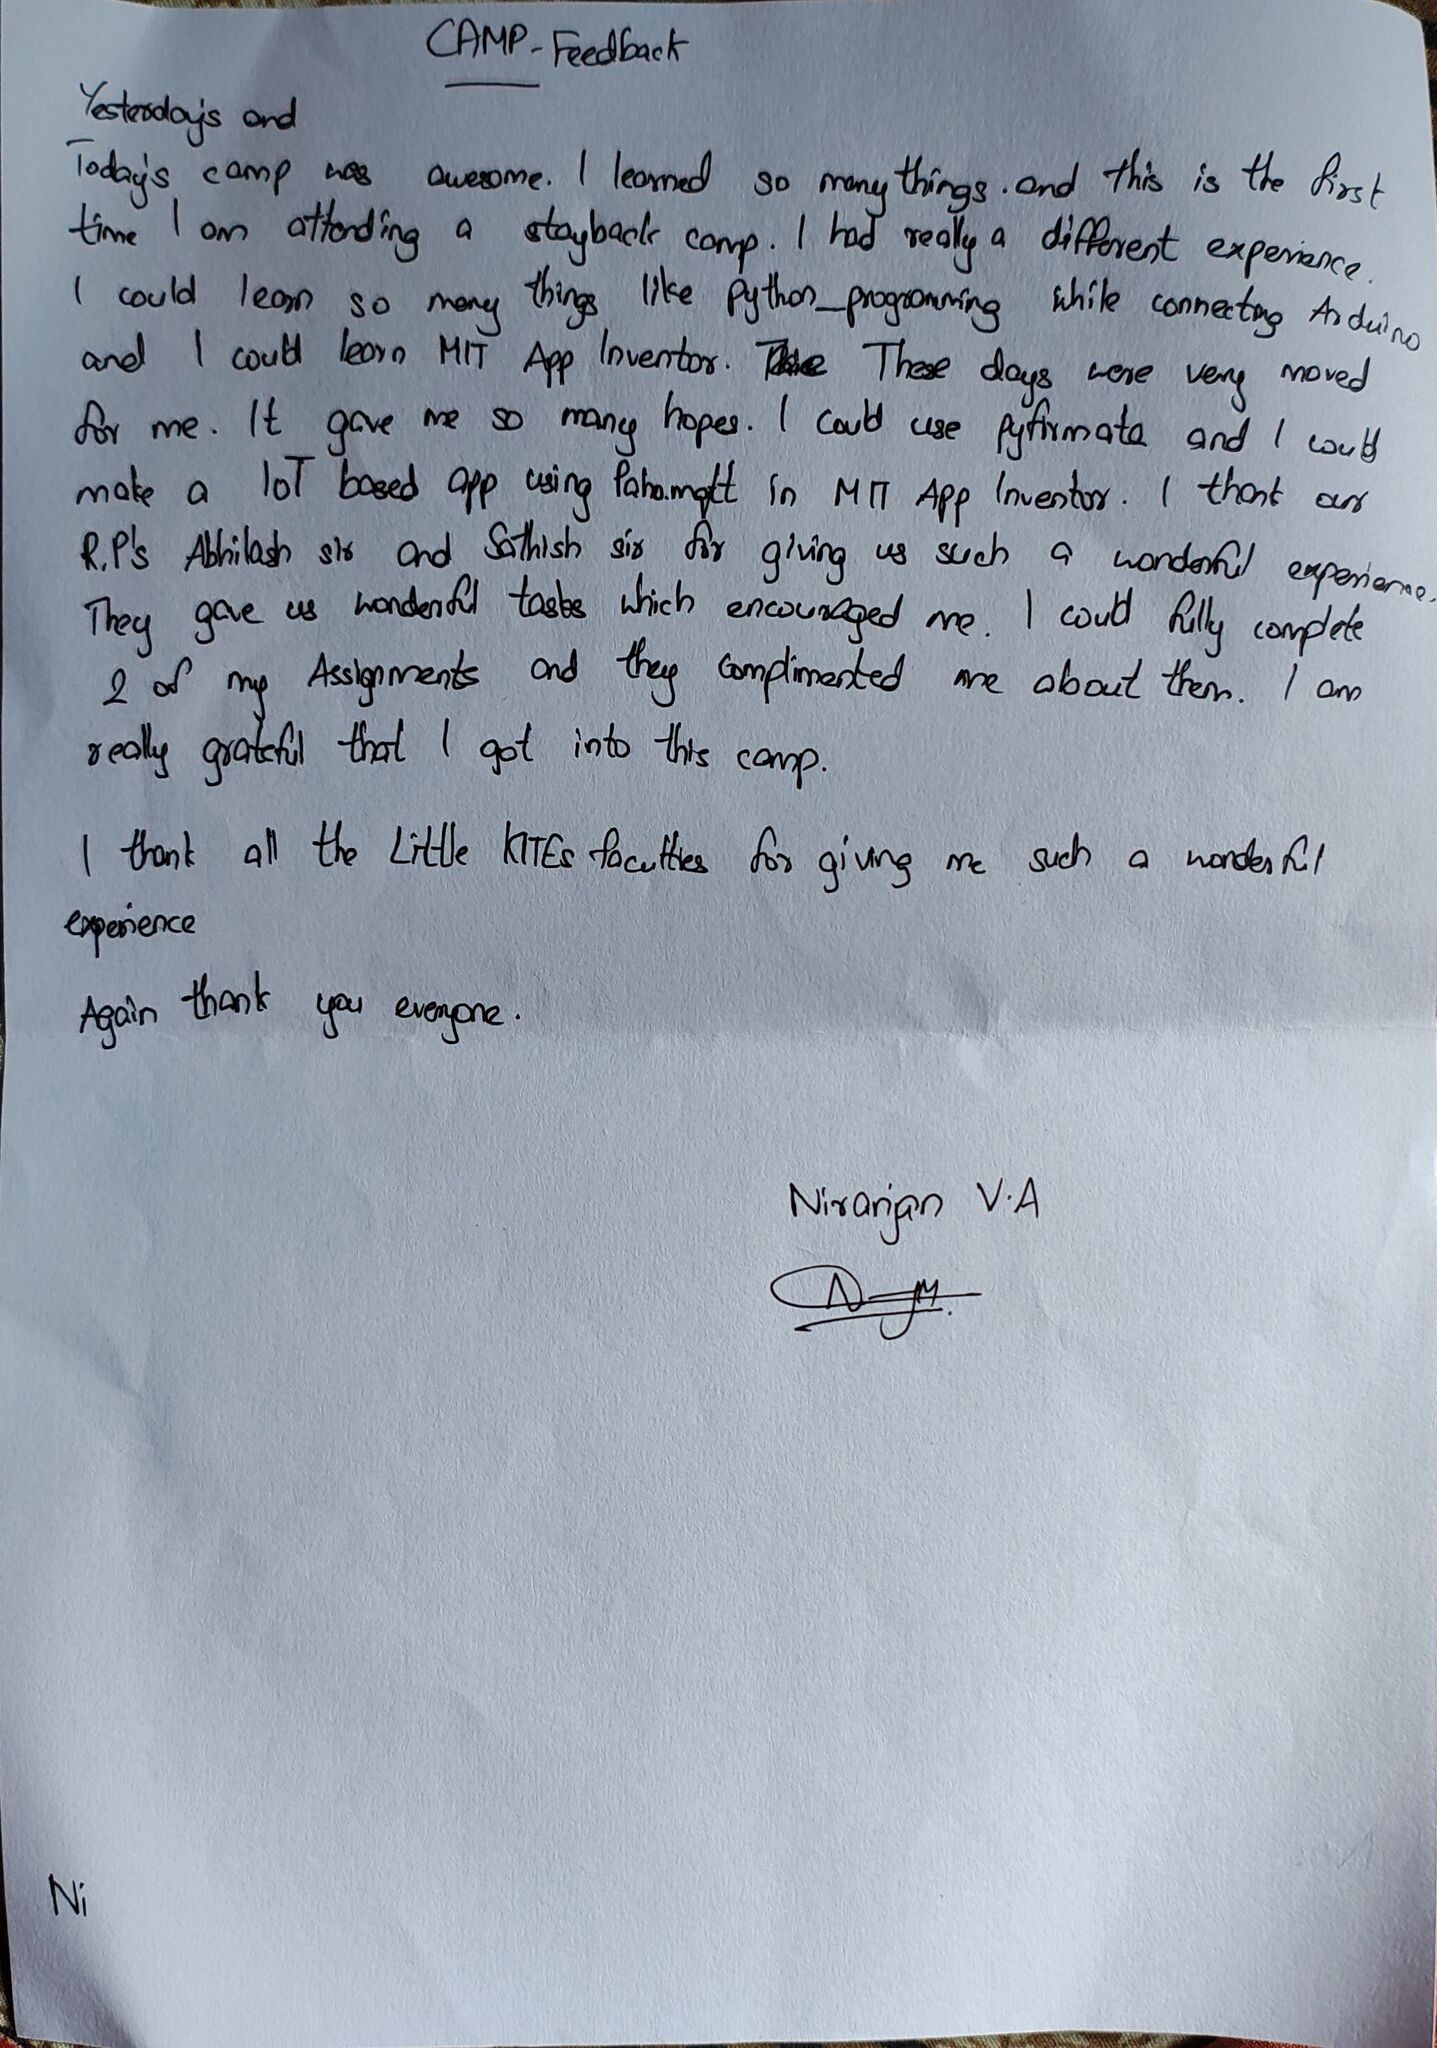 CAMP - Feedback
Yesterday's and
Today's camp was awesome. I learned so many things. and this is the first
time I am attending a stayback camp. I had really a different experience.
I could learn so many things like Python_programming while connecting Arduino
and I could learn MIT App Inventor. These days were very moved
for me. It gave me so many hopes. I could use Pyfirmata and I could
make a IoT based app using Paho.mqtt in MIT App Inventor. I thank our
R.P's Abhilash sir and Sathish sir for giving us such a wonderful experience.
They gave us wonderful tasks which encouraged me. I could fully complete
2 of my Assignments and they complimented me about them. I am
really grateful that I got into this camp.
I thank all the Little KITEs faculties for giving me such a wonderful
experience
Again thank you everyone.
Niranjan V.A
Ni